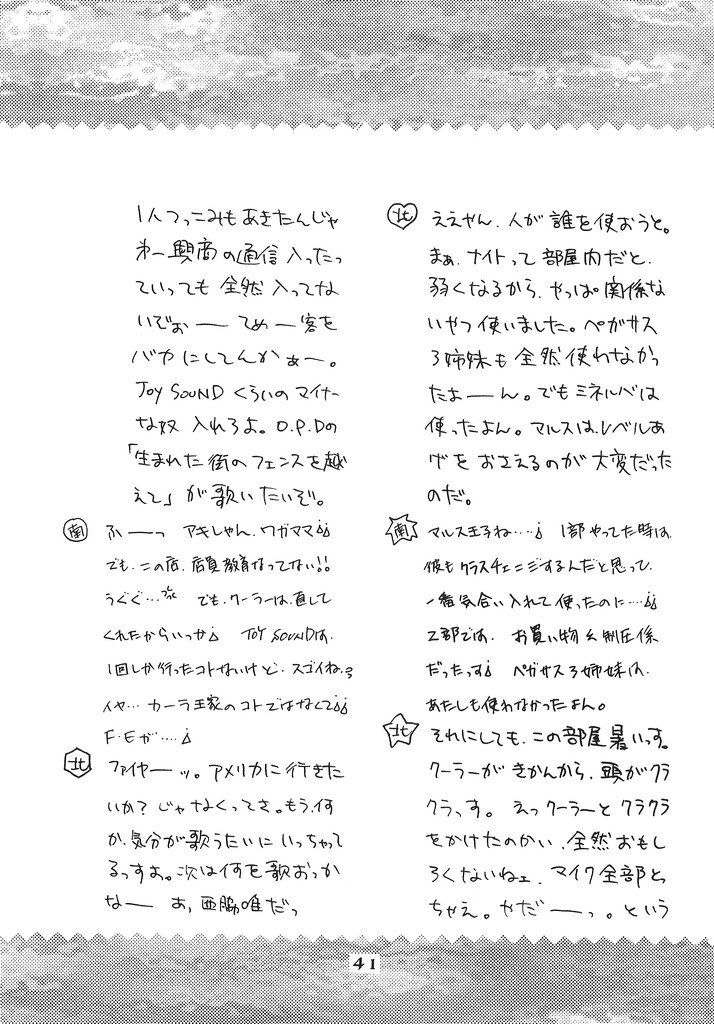 北 ええやん、人が誰を使おうと。
まぁ、ナイトって部屋内だと、
弱くなるから、やっぱ関係な
いやつ使いました。ペガサス
3姉妹も全然使わなかっ
たよーん。でもミネルバは
使ったよん。マルスは、レベルあ
げをおさえるのが大変だった
のだ。
南 マルス王子ね‥‥¡ 1部やってた時は、
彼もクラスチェンジするんだと思って、
一番気合い入れて使ったのに‥‥¡¡
2部では、お買い物&制圧係
だったっす¡ ペガサス3姉妹は、
あたしも使わなかったよん。
北 それにしても、この部屋暑いっす。
クーラーがきかんから、頭がクラ
クラっす。えっクーラーとクラクラ
をかけたのかい、全然おもし
ろくないねェ、マイク全部とっ
ちゃえ。やだーっ。という
1人つっこみもあきたんじゃ
ねー興商の通信入ったっ
ていっても全然入ってな
いぞぉーてめー客を
バカにしてんかぁー。
JOY SOUNDくらいのマイナー
な奴入れろよ。O.P.Dの
「生まれた街のフェンスを越
えて」が歌いたいぞ。
南 ふーっ アキしゃん、ワガママ¡¡
でも、この店、店員教育なってない!!
うぐぐ… でも、クーラーは、直して
くれたからいっか¡ JOY SOUNDは、
1回しか行ったコトないけど、スゴイね、
イヤ… カーラ王家のコトではなくて¡¡
F・Eが‥‥¡
北 ファイヤーッ。アメリカに行きた
いか?じゃなくってさ。もう、何
か、気分が歌うたいにいっちゃって
るっすよ。次は何を歌おっか
なー あ,西脇唯だっ
41